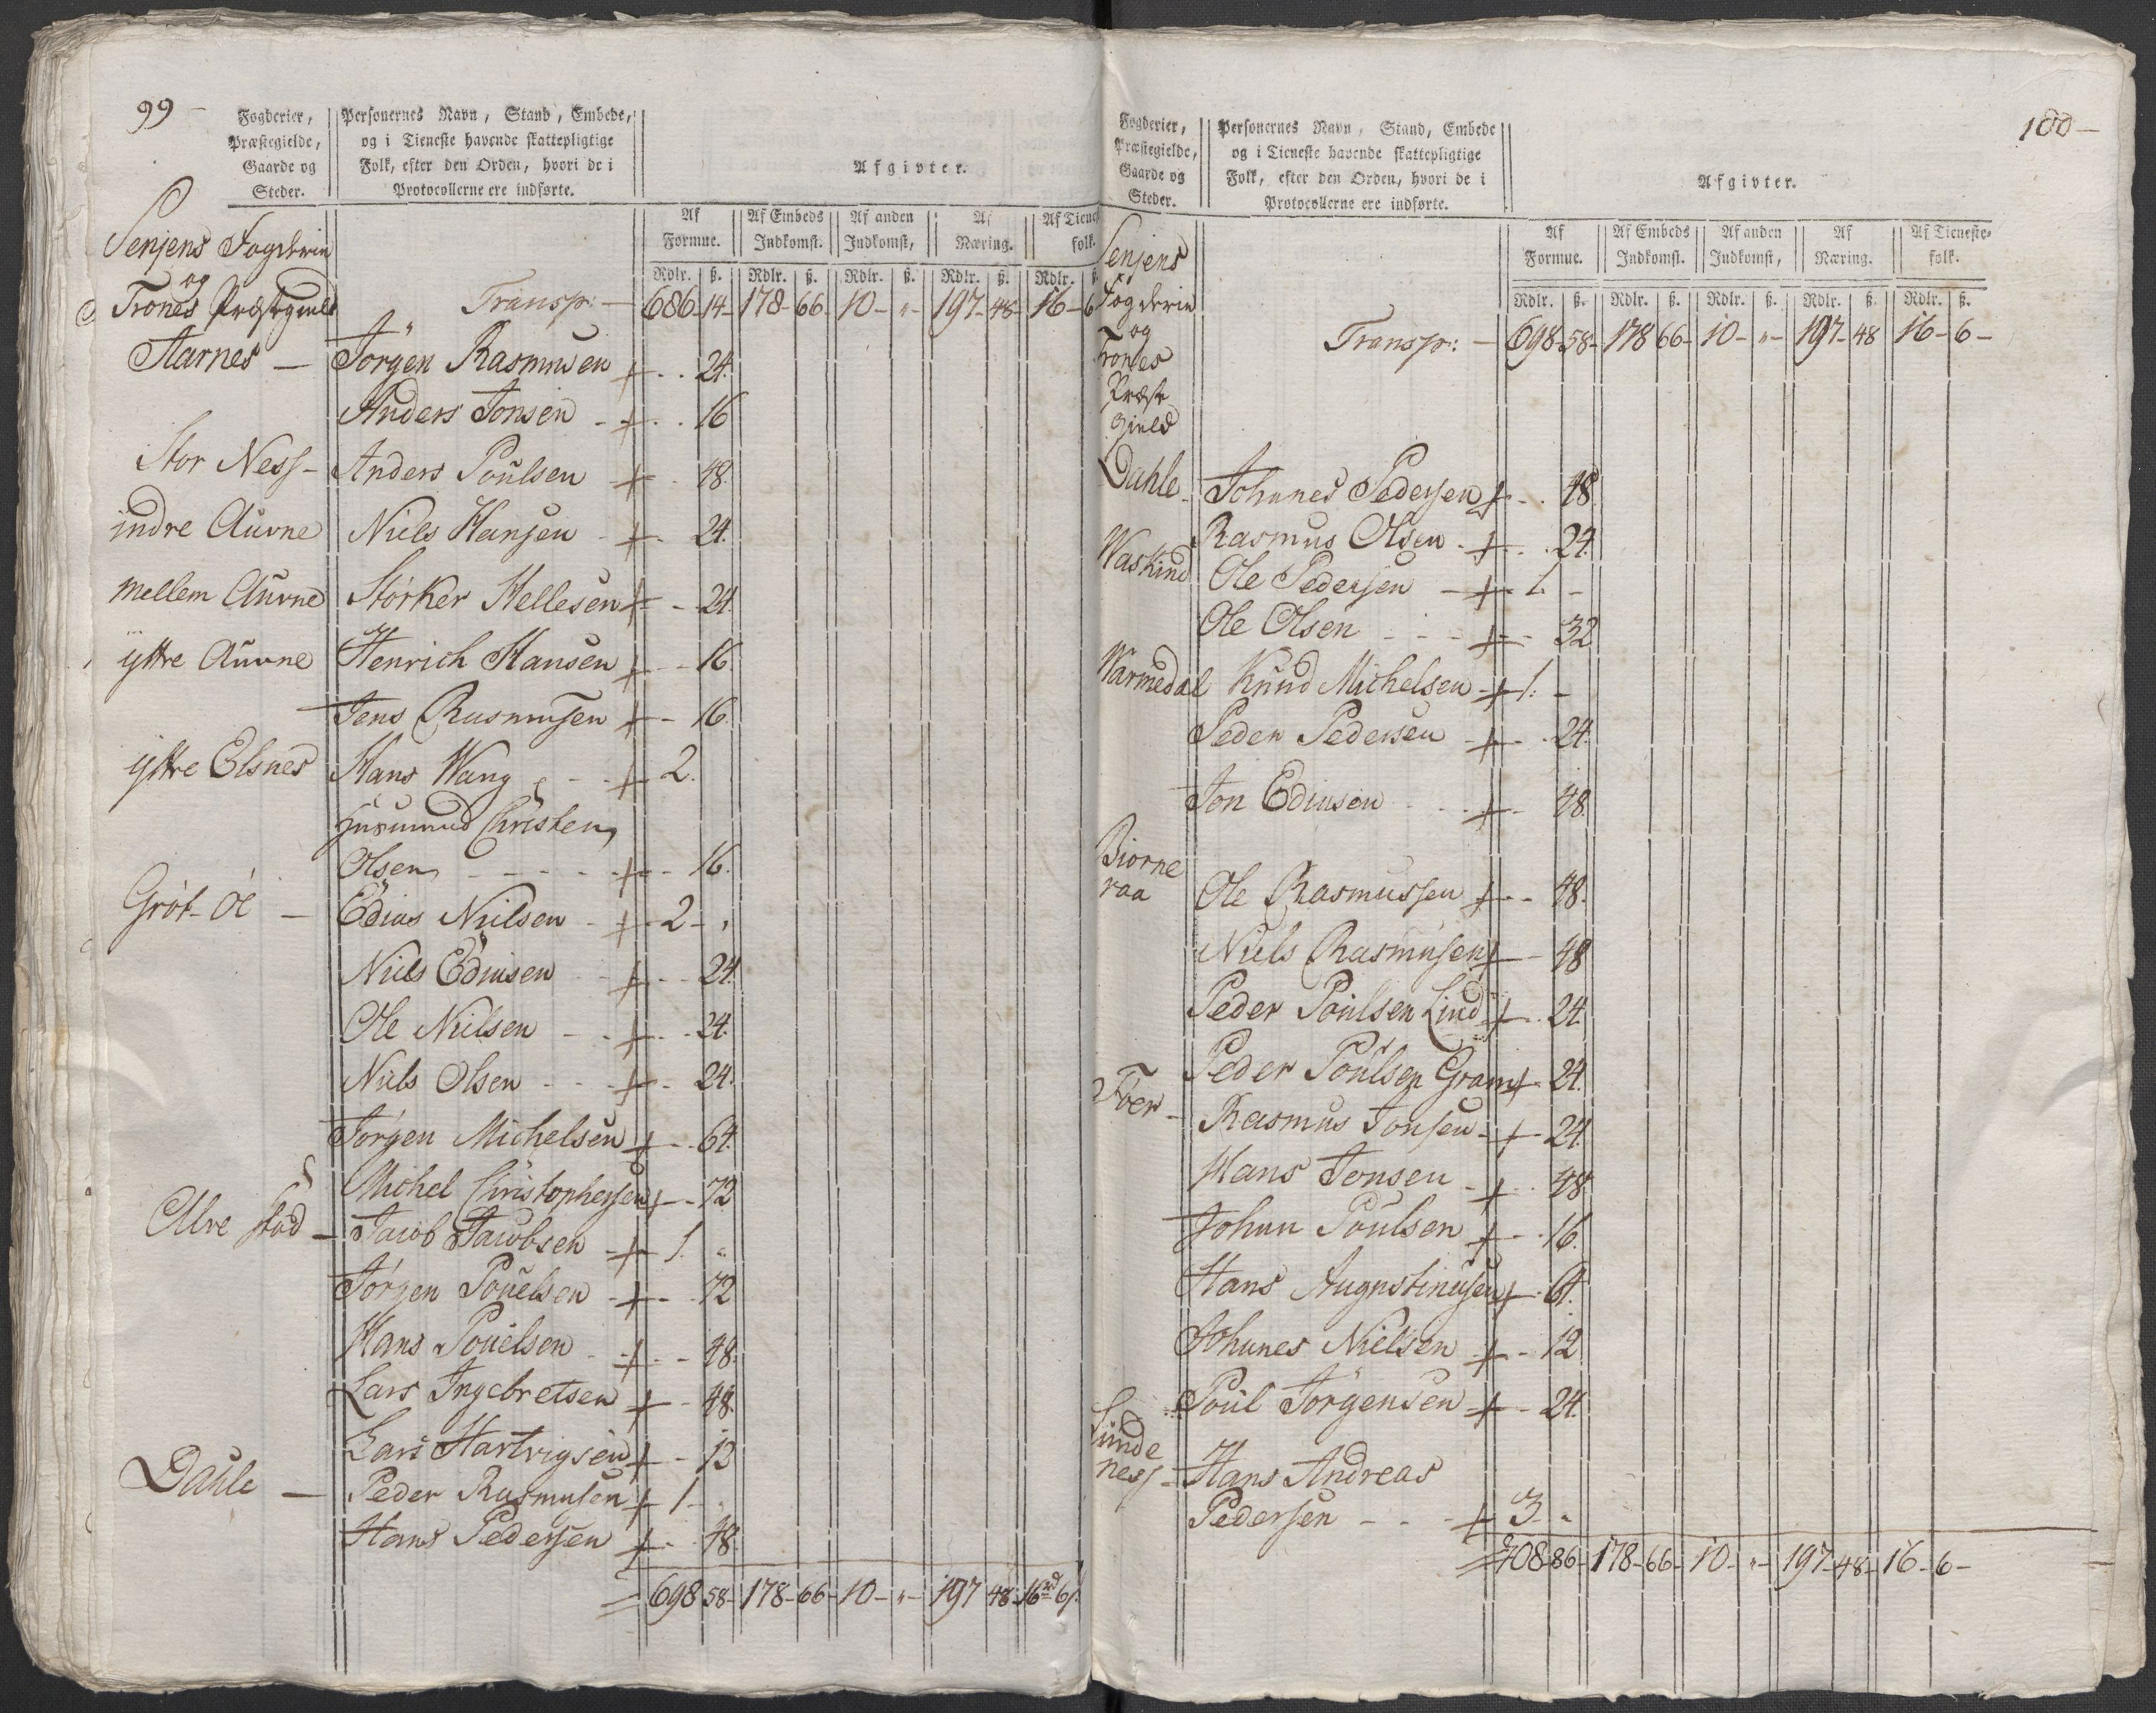 99 -
Fogderier, Præstegielde, Gaarde og Steder.
Personernes Navn, Stand, Embede, og i Tieneste havende skattepligtige Folk, efter den Orden, hvori de i Protocollerne ere indførte.
Afgivter.
Af Formue. Af Embeds Indkomst. Af anden Indkomst, Af Næring. Af Tienest folk.
Rdlr. ß. Rdlr. ß. Rdlr. ß. Rdlr. ß. Rdlr.
Senjens Fogderie
og
Trones Præstegield
Transp: - 686 - 14 - 178 - 66 - 10 - " - 197 - 48 - 16 - 6
Aarnes - Jörgen Rasmusen + 24.
Anders Jonsen + 16
Stor Ness - Anders Poulsen + 48.
indre Auvne Niels Hansen + 24.
mellem Auvne Störker Hellesen + 24.
yttre Auvne Henrich Hansen + 16
Jens Rasmusen + 16.
yttre Elsnes Hans Wang + 2.
Huusmand Christen
Olsen + 16.
Gröt-öe - Edias Nielsen + 2 -
Niels Ediasen + 24.
Ole Nielsen + 24.
Niels Olsen + 24.
Jörgen Michelsen + 64.
Michel Christophersen + 72
Alvestad - Jacob Jacobsen + 1. "
Jörgen Pouelsen + 72
Hans Pouelsen + 48.
Lars Ingebretsen + 48.
Lars Hartvigsen + 12
Dahle - Peder Rasmusen + 1 -
Hans Pedersen + 48.
698 58 - 178 - 66 - 10 - " - 197 48 - 16 rd 6 ß.
100 -
Fogderier, Præstegielde, Gaarde og Steder.
Personernes Navn, Stand, Embede og i Tieneste havende skattepligtige Folk, efter den Orden, hvori de i Protocollerne ere indførte.
Afgivter.
Af Formue. Af Embeds Indkomst. Af anden Indkomst, Af Næring. Af Tieneste-folk.
Rdlr. ß. Rdlr. ß. Rdlr. ß. Rdlr. ß. Rdlr. ß.
Senjens
Fogderie
og
Trones
Præste
gield
Transp: - 698 - 58 - 178 66 - 10 - " - 197 - 48 16 - 6 -
Dahle - Johanes Pedersen + 48.
Rasmus Olsen + 24.
Waskind Ole Pedersen + 1. -
Ole Olsen + 32
Warmedal Knud Michelsen + 1. -
Peder Pedersen + 24.
Jon Ediasen + 48.
Biorne
raa Ole Rasmussen + 48.
Niels Rasmusen + 48
Peder Poulsen Lind + 24.
Peder Poulsen Gram + 24.
Toen - Rasmus Jonsen + 24.
Hans Jonsen + 48
Johan Poulsen + 16.
Hans Augustinusen + 64.
Johanes Nielsen + 12
Poul Jörgensen + 24.
Lunde
ness - Hans Andreas
Pedersen + 3 -
708 86 - 178 - 66 - 10 - " - 197 - 48 - 16 - 6 -